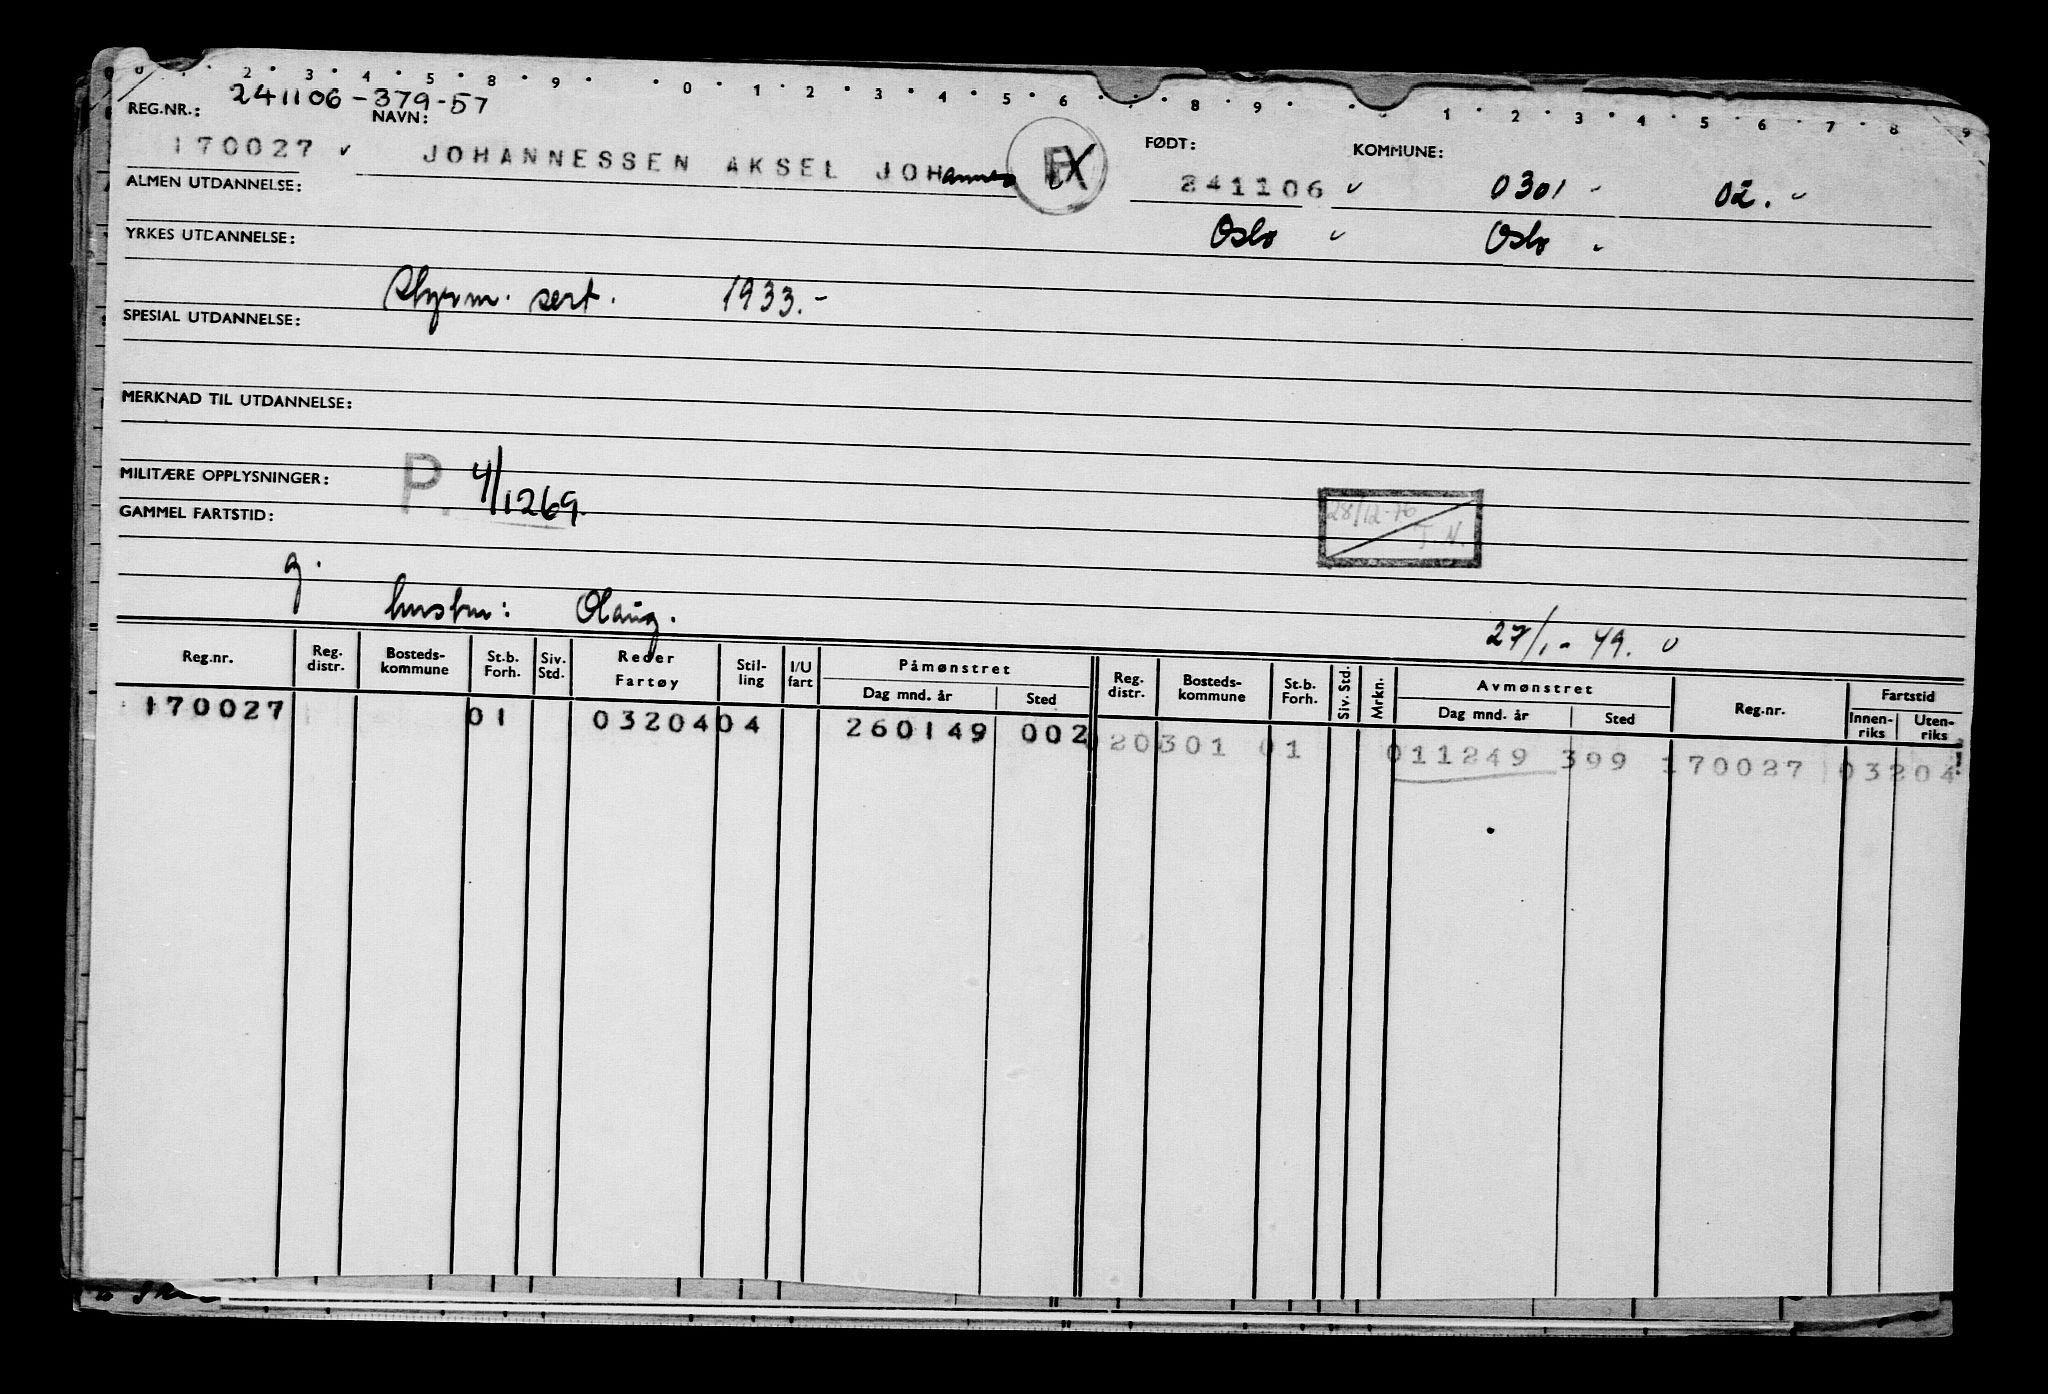 0 · 2 · 3 · 4 · 5 · 8 · 9 · · 0 · 1 · 2 · 3 · 4 · 5 · 6 · · 8 · 9 · · 1 · 2 · 3 · 4 · 5 · 6 · 7 · 8 · 9
241106-379-57
REG.NR.: NAVN: FØDT: KOMMUNE:
170027 JOHANNESSEN AKSEL JOHannes 241106 0301 02.
ALMEN UTDANNELSE:
Oslo Oslo
YRKES UTDANNELSE:
Styrm. sert. 1933.-
SPESIAL UTDANNELSE:
MERKNAD TIL UTDANNELSE:
MILITÆRE OPPLYSNINGER: P. 4/1269.
28/12-76
GAMMEL FARTSTID:
J. N.
g.
hustru: Olaug. 27/1-49.
Reg.nr. Reg. distr. Bosteds-kommune St.b. Forh. Siv. Std. Reder Fartøy Stil-ling I/U fart Påmønstret Dag mnd. år Sted Reg. distr. Bosteds-kommune St.b. Forh. Siv. Std. Mrkn. Avmønstret Dag mnd. år Sted Reg.nr. Fartstid Innen-riks Uten-riks
170027 01 0320404 260149 002 20301 01 011249 399 170027 03204